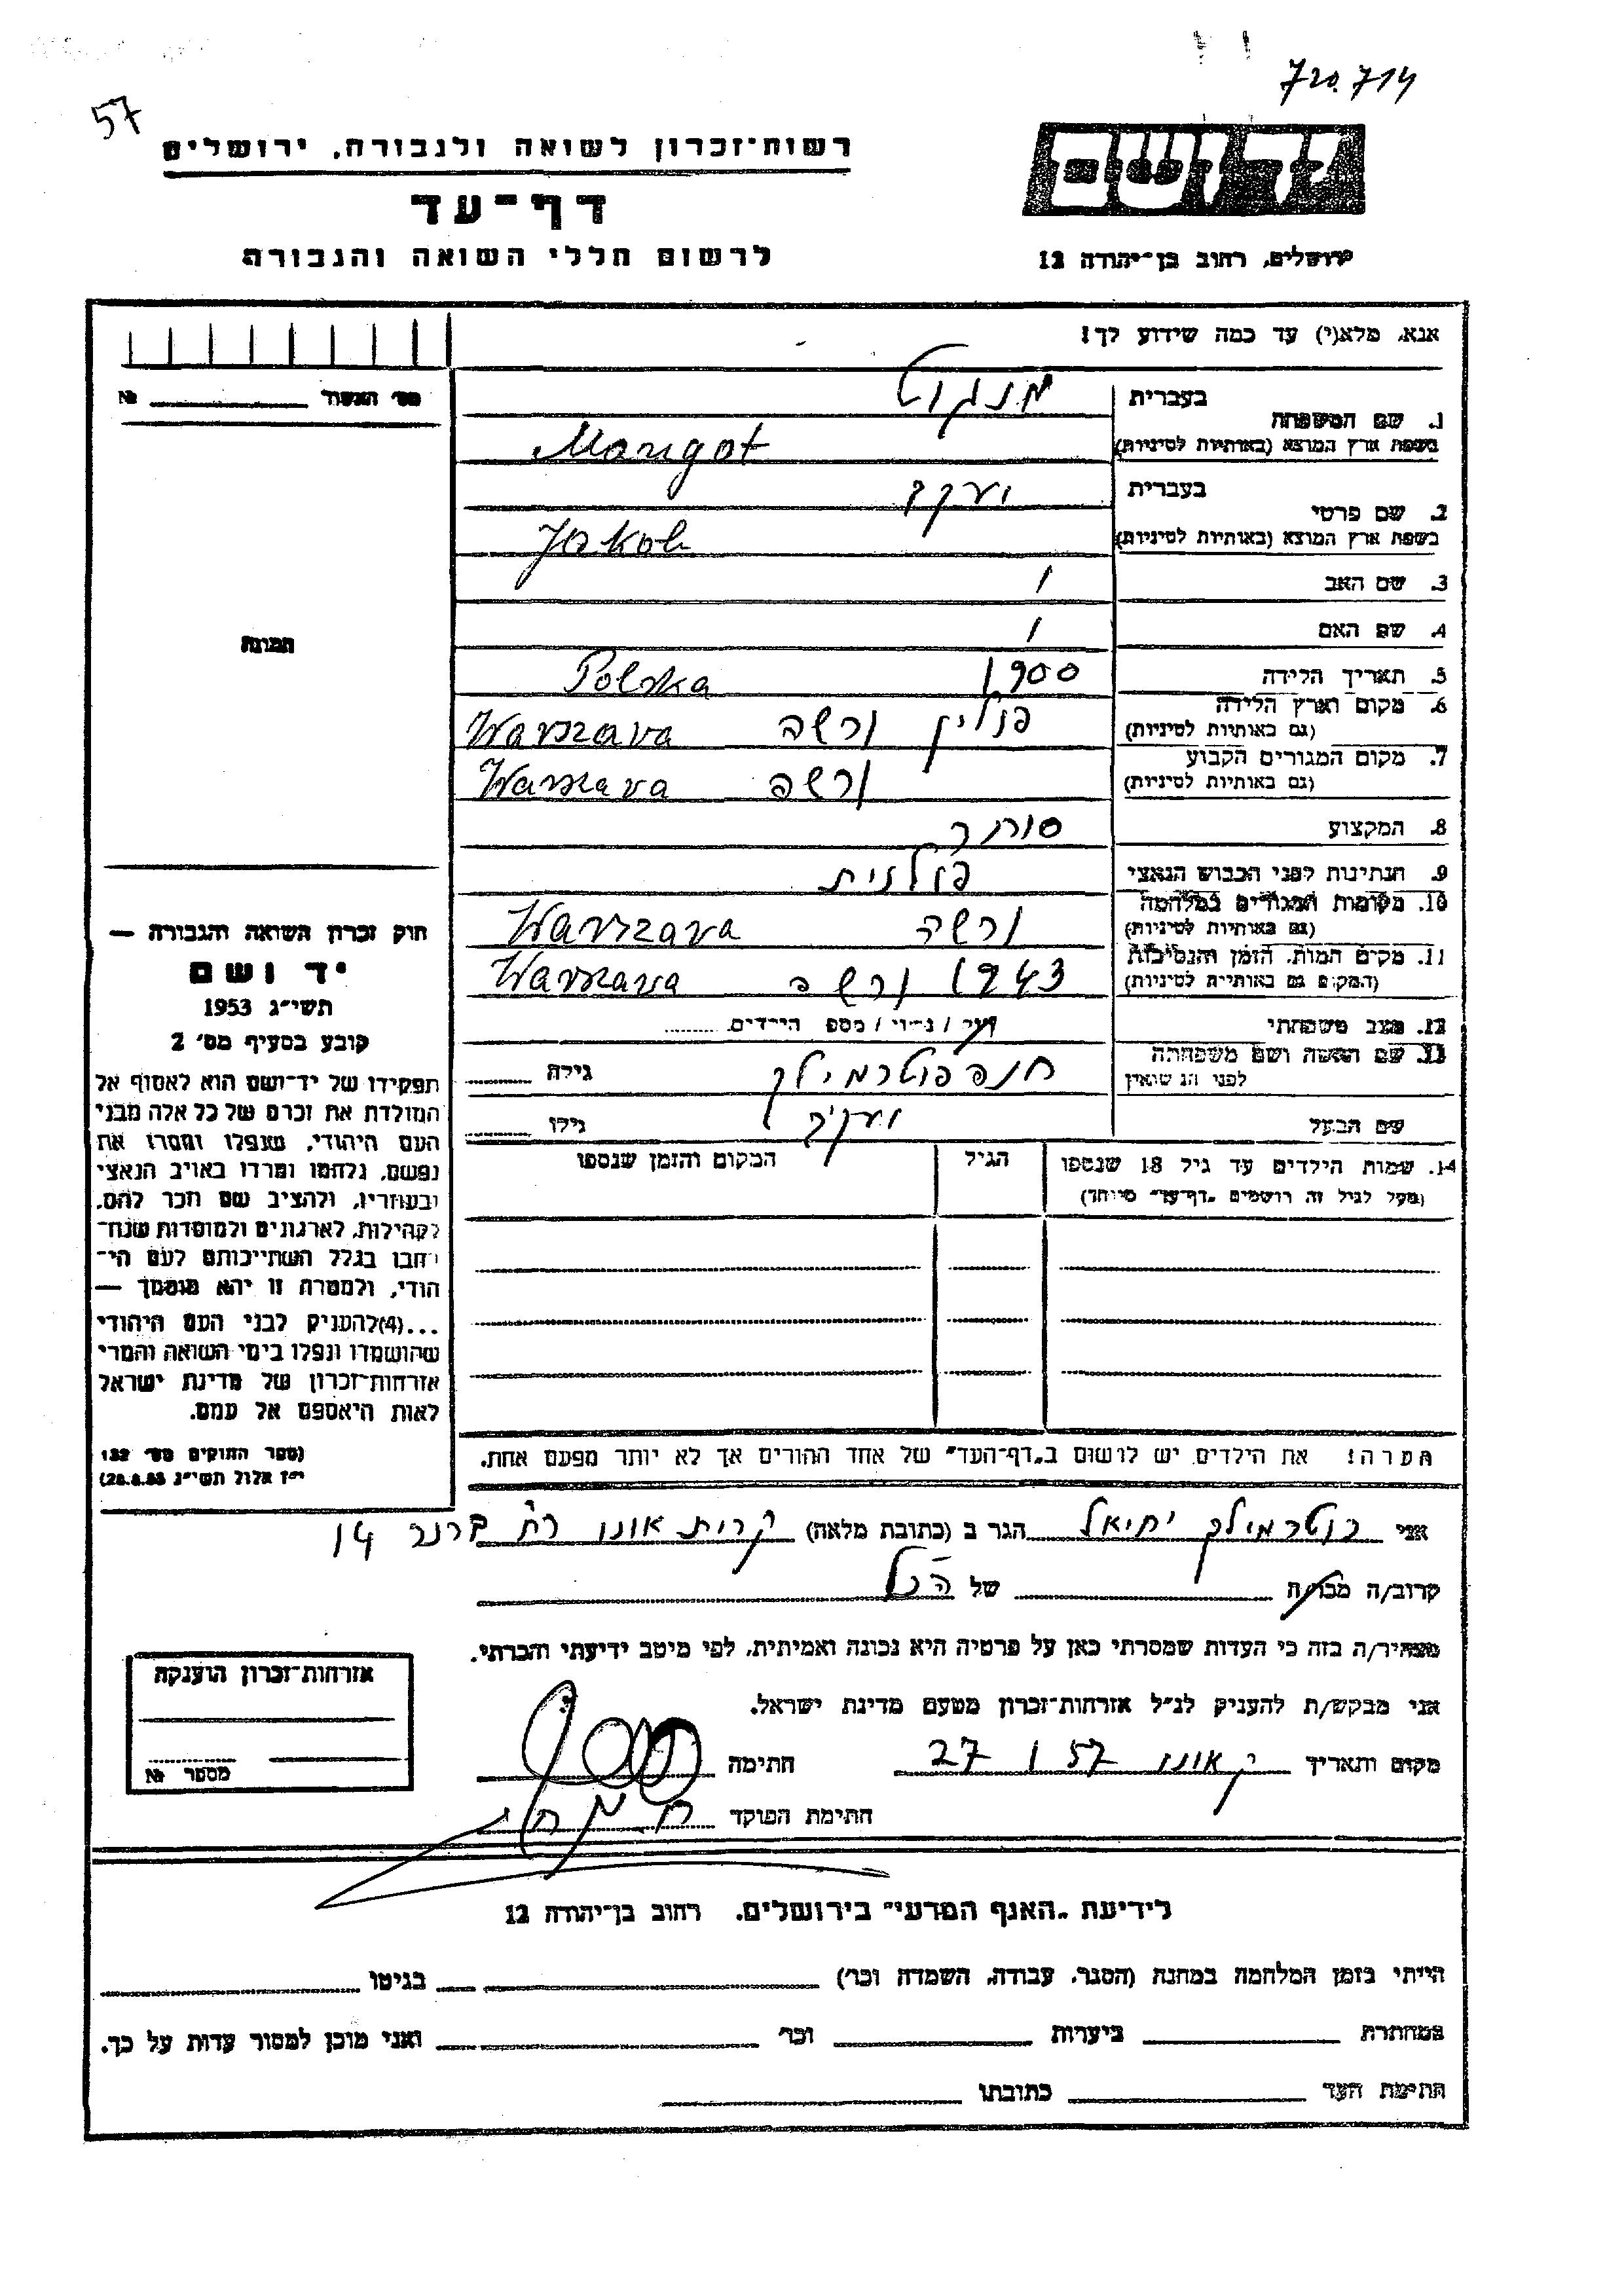 720.714
57
יד ושם
רשות־זכרון לשואה ולגבורה, ירושלים
דף־עד
לרשום חללי השואה והגבורה
ירושלים, רחוב בן־יהודה 12
אנא, מלא(י) עד כמה שידוע לך!
מס' האשור № 
1. שם המשפחה
בעברית מנגוט
בשפת ארץ המוצא (באותיות לטיניות) Mangot
2. שם פרטי
בעברית יעקב
בשפת ארץ המוצא (באותיות לטיניות) Jakob
3. שם האב /
4. שם האם /
תמונה
5. תאריך הלידה 1900 Polska
6. מקום וארץ הלידה (גם באותיות לטיניות) פולין ורשה Warszava
7. מקום המגורים הקבוע (גם באותיות לטיניות) ורשה Warszava
8. המקצוע סוחר
9. הנתינות לפני הכבוש הנאצי פולנית
10. מקומות המגורים במלחמה (גם באותיות לטיניות) ורשה Warszava
11. מקום המות, הזמן והנסיבות (המקום גם באותיות לטיניות) 1943 ורשה Warszava
12. מצב משפחתי / נשוי / מספ הילדים
13. שם האשה ושם משפחתה לפני הנשואין חנה פוטרמילך גילה
שם הבעל יעקב גילו
14. שמות הילדים עד גיל 18 שנספו
(מעל לגיל זה רושמים „דף־עד" מיוחד)
הגיל
המקום והזמן שנספו
חוק זכרון השואה והגבורה —
יד ושם
תשי״ג 1953
קובע בסעיף מס׳ 2
תפקידו של יד־ושם הוא לאסוף אל
המולדת את זכרם של כל אלה מבני
העם היהודי, שנפלו ומסרו את
נפשם, נלחמו ומרדו באויב הנאצי
ובעוזריו, ולהציב שם וזכר להם,
לקהילות, לארגונים ולמוסדות שנח־
רבו בגלל השתייכותם לעם הי־
הודי, ולמטרה זו יהא מוסמך —
...(4)להעניק לבני העם היהודי
שהושמדו ונפלו בימי השואה והמרי
אזרחות־זכרון של מדינת ישראל
לאות היאספם אל עמם.
(ספר החוקים מס׳ 132
י״ז אלול תשי״ג 28.8.53)
הערה! את הילדים יש לרשום ב„דף־העד" של אחד ההורים אך לא יותר מפעם אחת.
אני פוטרמילך יחיאל הגר ב (כתובת מלאה) קרית אונו רח' ברנר 14
קרוב/ה מכר/ה של הנ"ל
מצהיר/ה בזה כי העדות שמסרתי כאן על פרטיה היא נכונה ואמיתית, לפי מיטב ידיעתי והכרתי.
אני מבקש/ת להעניק לנ״ל אזרחות־זכרון מטעם מדינת ישראל.
מקום ותאריך ק אונו 27 1 57 חתימה
חתימת הפוקד
אזרחות־זכרון הוענקה
מספר №
לידיעת „האגף המדעי" בירושלים, רחוב בן־יהודה 12
הייתי בזמן המלחמה במחנה (הסגר, עבודה, השמדה וכו׳) בגיטו
במחתרת ביערות וכו׳ ואני מוכן למסור עדות על כך.
חתימת העד כתובתו